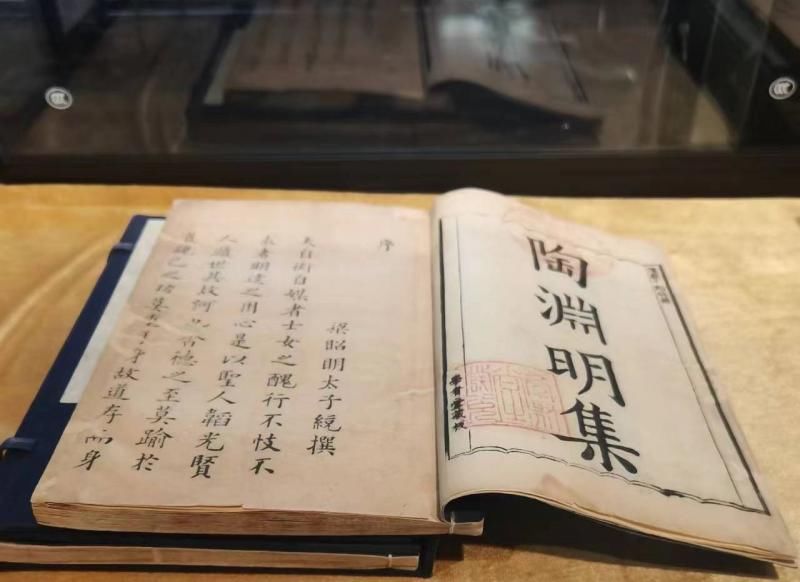 陶淵明集
序
梁昭明太子統撰
夫自衒自媒者士女之醜行不忮不
求者明達之用心是以聖人韜光賢
人遁世其故何也含德之至莫踰於
道親己之身故道存而身